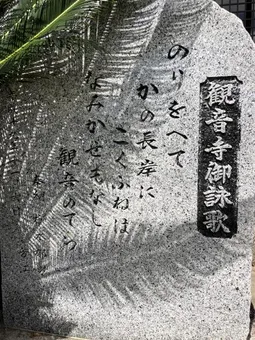 観音寺御詠歌
のりをへて
かの長岸に
こくふねは
なみかせもなし
観音のてら